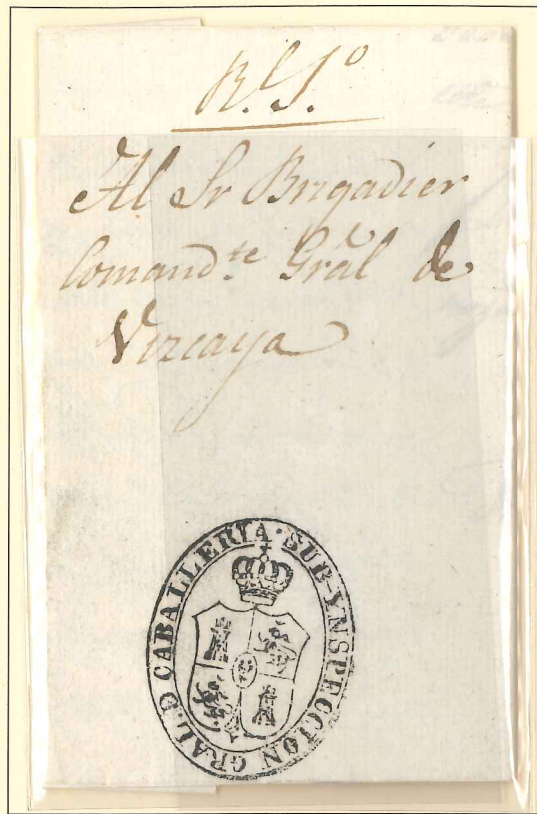 R.l S.o
Al Sr Brigadier
Comand.te Gral de
Vizcaya
SUB-YNSPECCION GRAL. D CABALLERIA